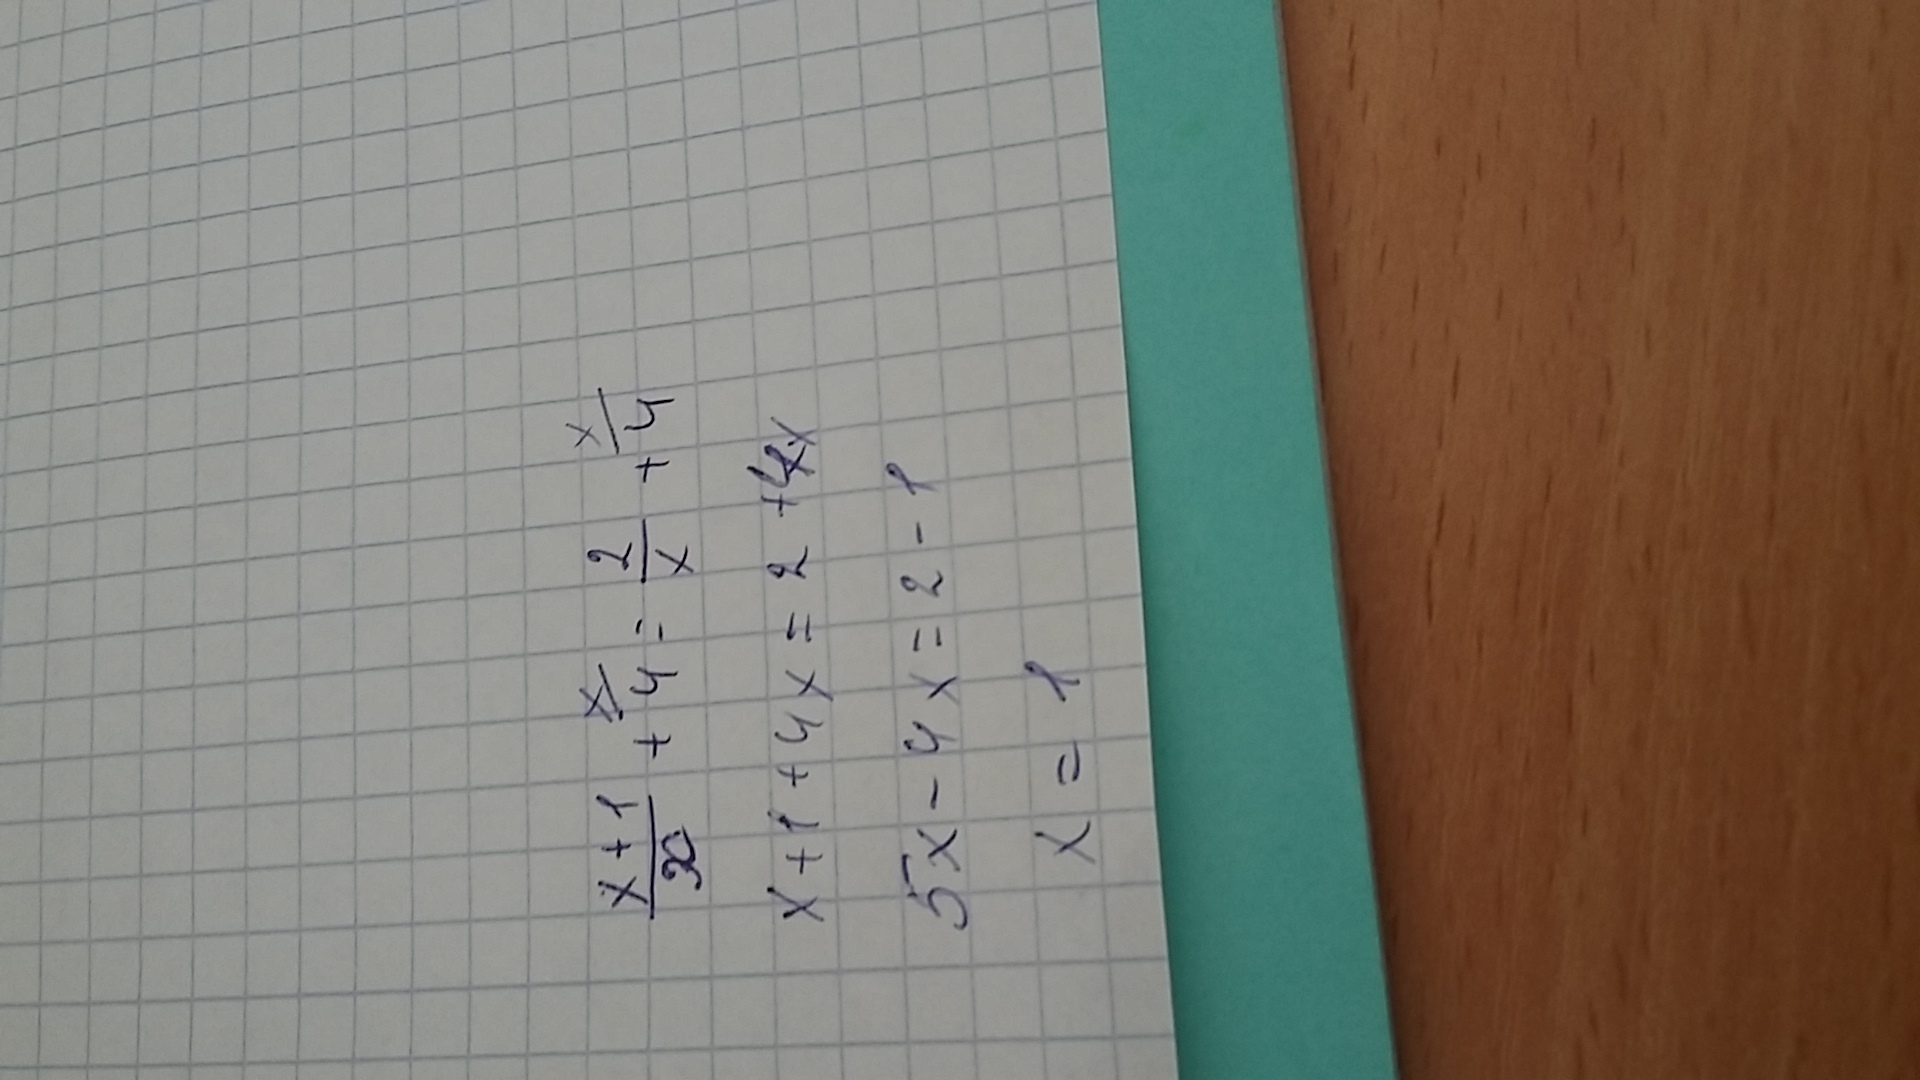 (x+1)/x + 4 x/ = 2/x + 4 x/
x+1+4x=2+4x
5x-4x=2-1
x=1